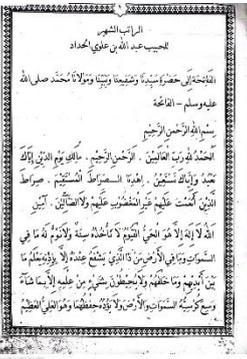 ١
الراتب الشهير
للحبيب عبد الله بن علوي الحداد
الْفَاتِحَةَ إِلَى حَضْرَةِ سَيِّدِنَا وَشَفِيعِنَا وَنَبِيِّنَا وَمَوْلَانَا مُحَمَّد صلى الله
عليه وسلم - الفاتحة
بِسْمِ اللهِ الرَّحْمنِ الرَّحِيْمِ
الْحَمْدُ للهِ رَبِّ الْعَالَمِيْنَ . الرَّحْمنِ الرَّحِيْمِ . مَالِكِ يَوْمِ الدِّيْنِ إِيَّاكَ
نَعْبُدُ وَإِيَّاكَ نَسْتَعِيْنُ . اِهْدِنَا الصِّرَاطَ الْمُسْتَقِيْمَ . صِرَاطَ
الَّذِيْنَ أَنْعَمْتَ عَلَيْهِمْ غَيْرِ الْمَغْضُوْبِ عَلَيْهِمْ وَلَا الضَّالِّيْنَ . آمِيْنَ
اللهُ لَا إِلهَ إِلَّا هُوَ الْحَيُّ الْقَيُّوْمُ لَا تَأْخُذُهُ سِنَةٌ وَلَا نَوْمٌ لَهُ مَا فِي
السَّموَاتِ وَمَا فِي الْأَرْضِ مَنْ ذَا الَّذِيْ يَشْفَعُ عِنْدَهُ إِلَّا بِإِذْنِهِ يَعْلَمُ مَا
بَيْنَ أَيْدِيْهِمْ وَمَا خَلْفَهُمْ وَلَا يُحِيْطُوْنَ بِشَيْءٍ مِنْ عِلْمِهِ إِلَّا بِمَا شَاءَ
وَسِعَ كُرْسِيُّهُ السَّموَاتِ وَالْأَرْضَ وَلَا يَؤُدُهُ حِفْظُهُمَا وَهُوَ الْعَلِيُّ الْعَظِيْمُ